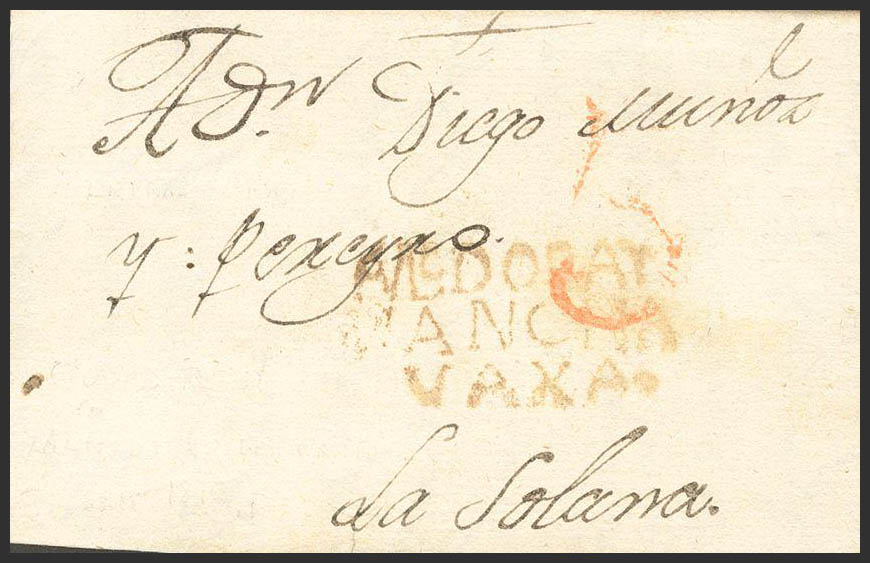 A Dn Diego Muñoz
y: Pereyro.
MANCHA
VAXA.
La Solana.